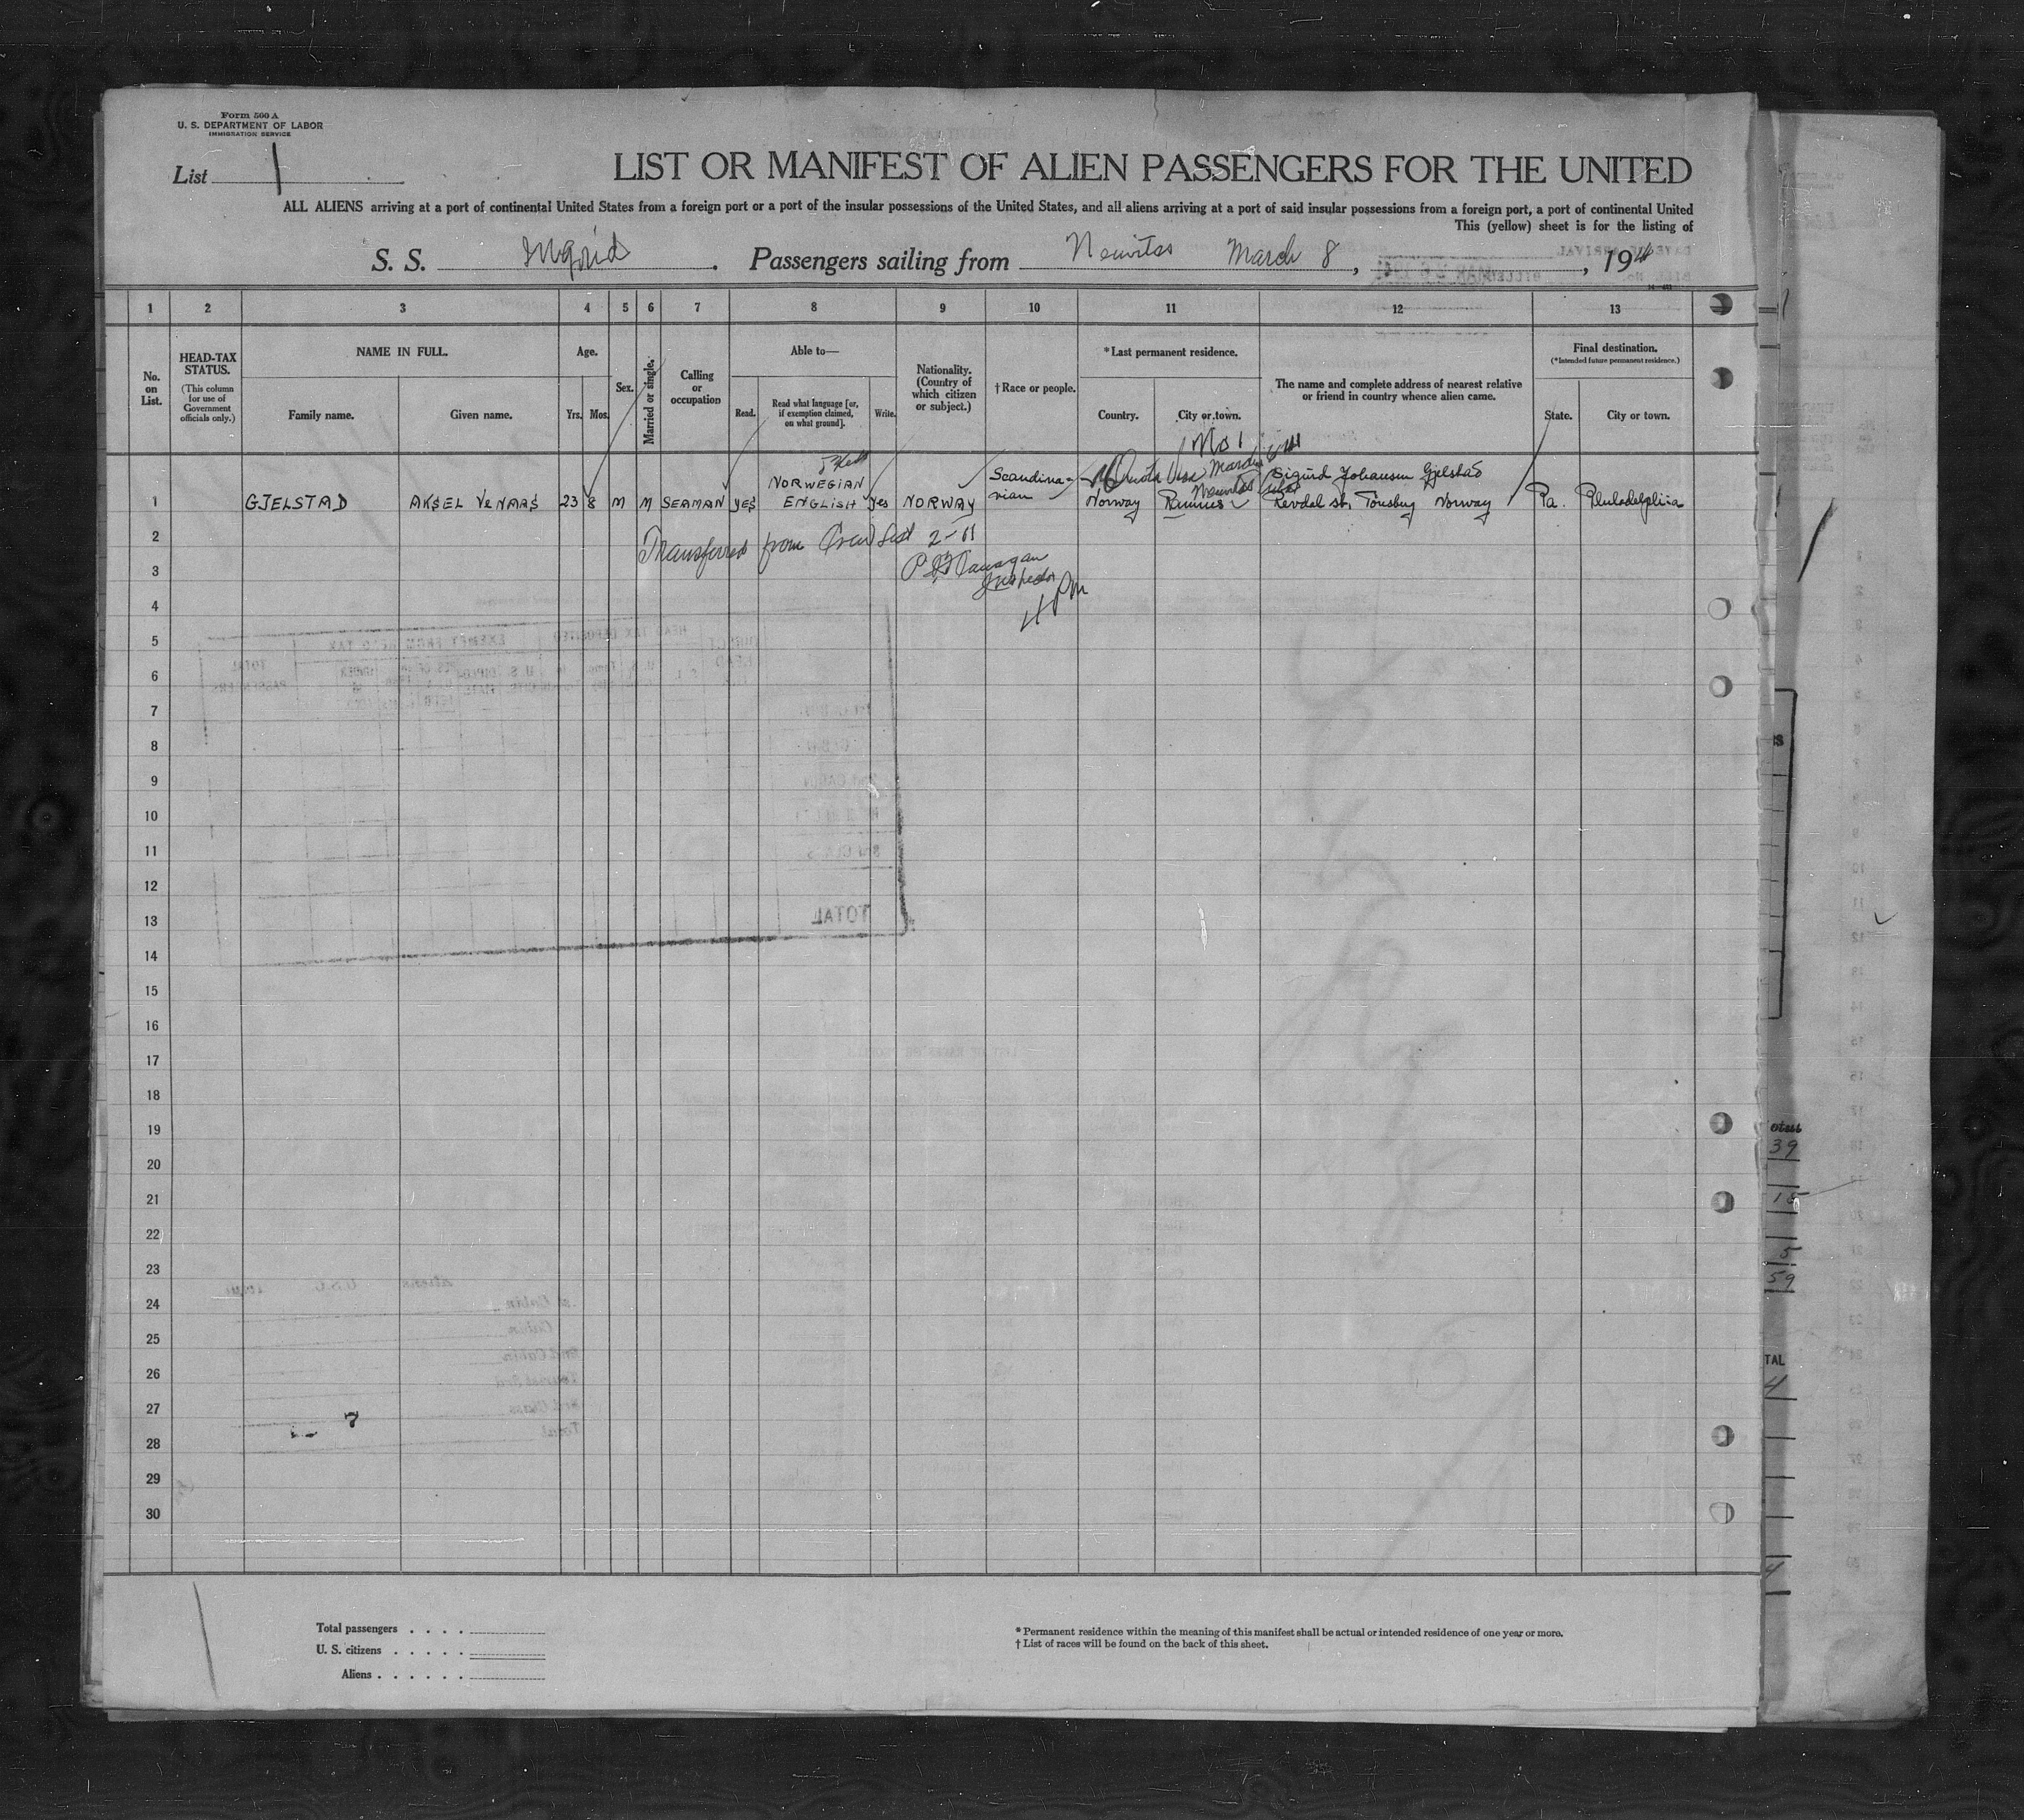 Form 500 A
U. S. DEPARTMENT OF LABOR
IMMIGRATION SERVICE
List 1
LIST OR MANIFEST OF ALIEN PASSENGERS FOR THE UNITED
ALL ALIENS arriving at a port of continental United States from a foreign port or a port of the insular possessions of the United States, and all aliens arriving at a port of said insular possessions from a foreign port, a port of continental United
This (yellow) sheet is for the listing of
S. S. Ingrid . Passengers sailing from Nuevitas March 8 , , 19
1 2 3 4 5 6 7 8 9 10 11 12 13
No. on List.
HEAD-TAX STATUS.
(This column for use of Government officials only.)
NAME IN FULL.
Family name.
Given name.
Age.
Yrs.
Mos.
Sex.
Married or single.
Calling or occupation
Able to—
Read.
Read what language [or, if exemption claimed, on what ground].
Write.
Nationality. (Country of which citizen or subject.)
†Race or people.
*Last permanent residence.
Country.
City or town.
The name and complete address of nearest relative or friend in country whence alien came.
Final destination.
(*Intended future permanent residence.)
State.
City or town.
No 1
1 GJELSTAD AKSEL VENAAS 23 8 M M SEAMAN yes NORWEGIAN ENGLISH yes NORWAY Scandinavian Norway Sigurd Johansen Gjelstad Revdal st, Tönsberg Norway Pa. Philadelphia
2 Transferred from Crew List 2-11
3 Inspector
4
5
6
7
8
9
10
11
12
13
14
15
16
17
18
19
20
21
22
23
24
25
26
27
28
29
30
Total passengers . . . .
U. S. citizens . . . . .
Aliens . . . . . .
* Permanent residence within the meaning of this manifest shall be actual or intended residence of one year or more.
† List of races will be found on the back of this sheet.
39
15
5
59
TAL
4
4